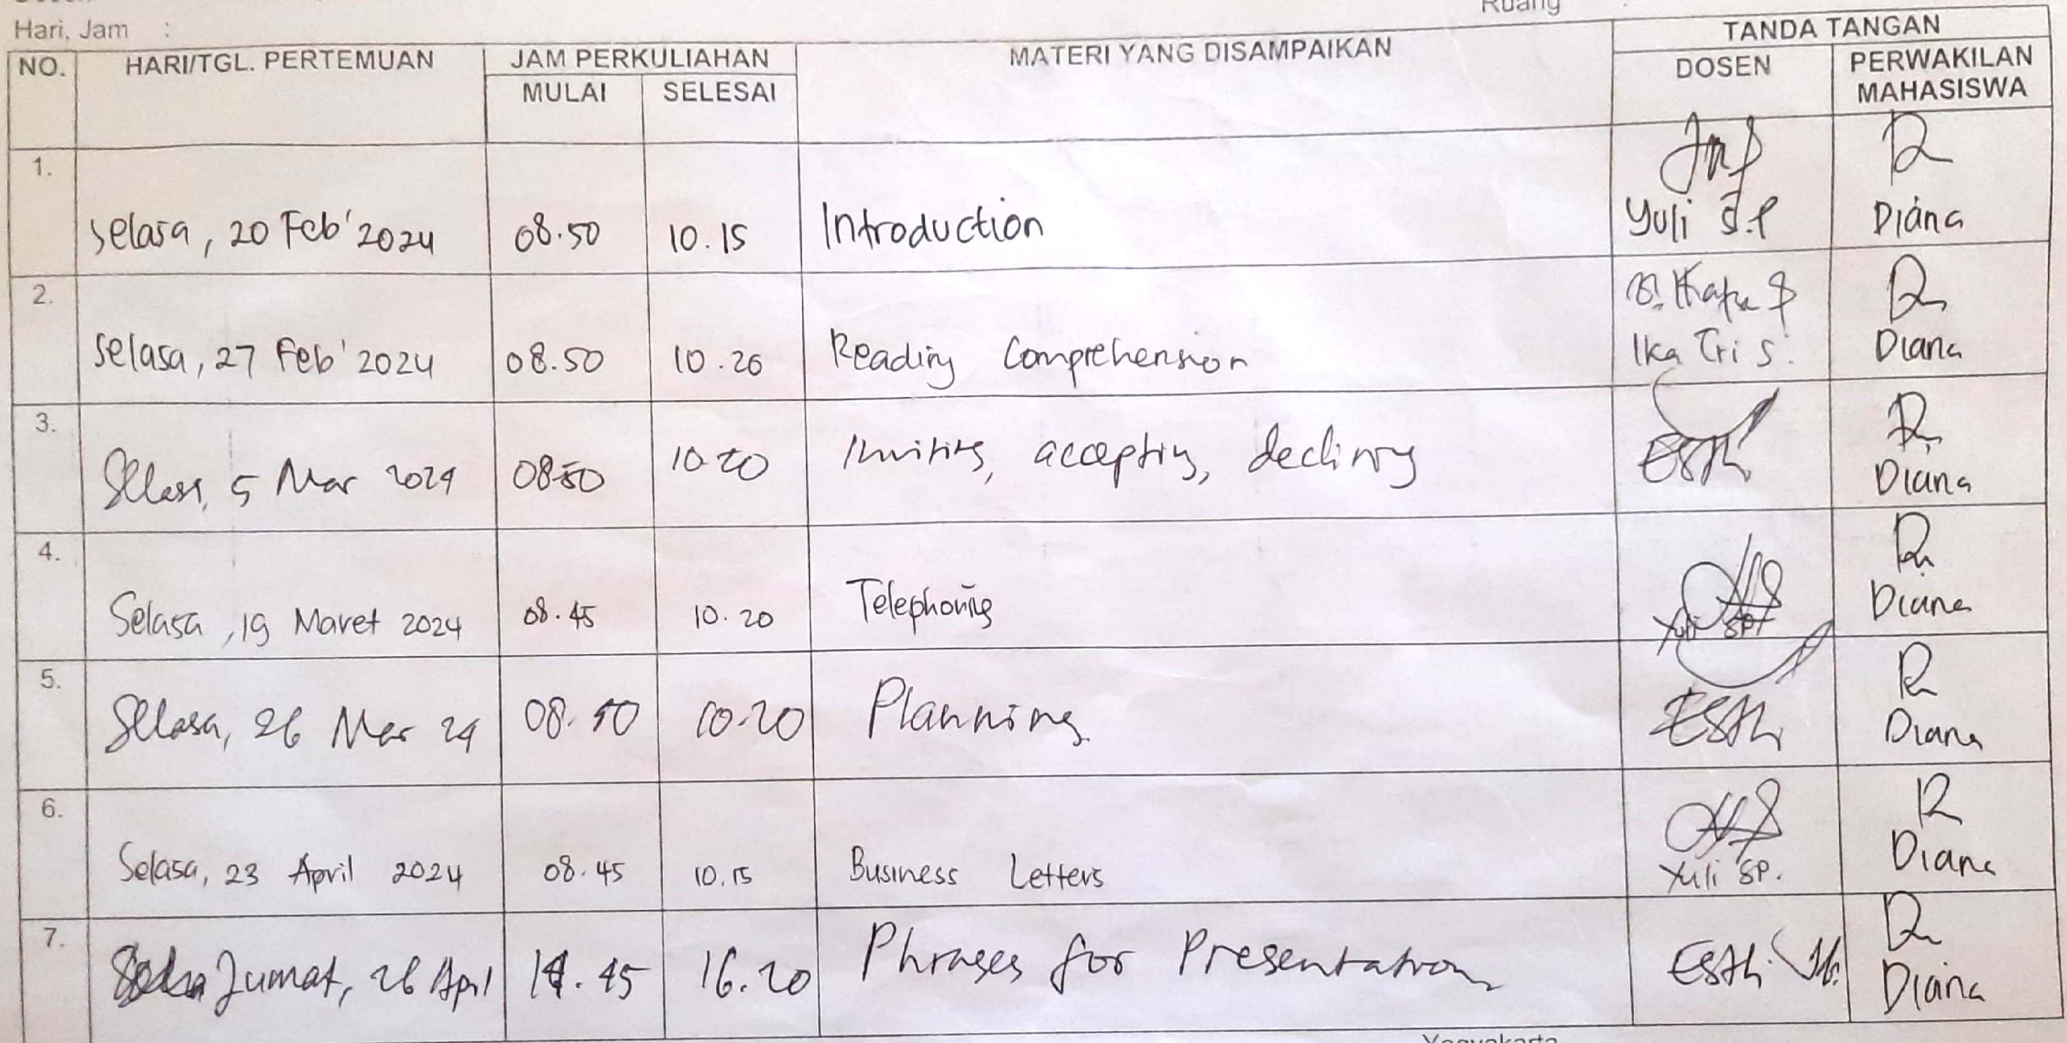 Hari, Jam :
Ruang
NO. HARI/TGL. PERTEMUAN JAM PERKULIAHAN MATERI YANG DISAMPAIKAN TANDA TANGAN
MULAI SELESAI DOSEN PERWAKILAN MAHASISWA
1. Selasa, 20 Feb' 2024 08.50 10.15 Introduction Yuli S.P Diana
2. Selasa, 27 Feb' 2024 08.50 10.20 Reading Comprehension Ika Tri S. Diana
3. Selasa, 5 Mar 2024 08.50 10.20 Inviting, accepting, declining Esth Diana
4. Selasa, 19 Maret 2024 08.45 10.20 Telephoning Yuli SP Diana
5. Selasa, 26 Mar 24 08.50 10.20 Planning Esth Diana
6. Selasa, 23 April 2024 08.45 10.15 Business Letters Yuli SP. Diana
7. Jumat, 26 April 14.45 16.20 Phrases for Presentation Esth Diana
Yogyakarta